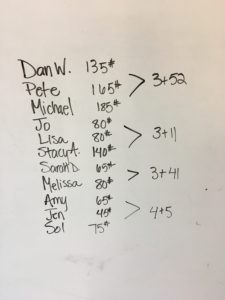 Dan W. 135#
Pete 165# > 3+52
Michael 185#
Jo 80#
Lisa 80# > 3+11
Stacy A 140#
65#
Melissa 80# > 3+41
Amy 65#
Jen 45# > 4+5
Sol 75#